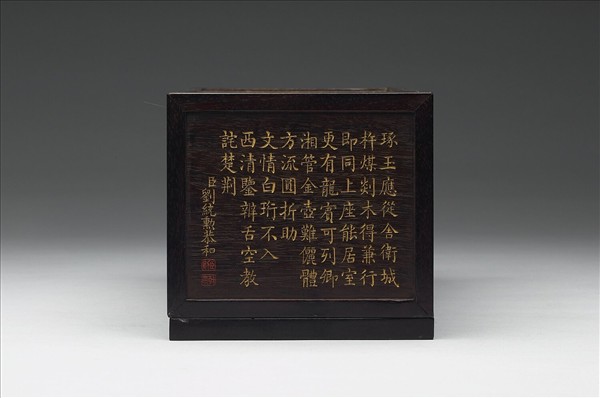 琢玉應從舍衛城
杵煤剡木得兼行
即同上座能居室
更有龍賓可列卿
湘管金壺難儷體
方流圓折助
文情白珩不入
西清鑒辨舌空教
詫楚荆
臣劉統勲恭和